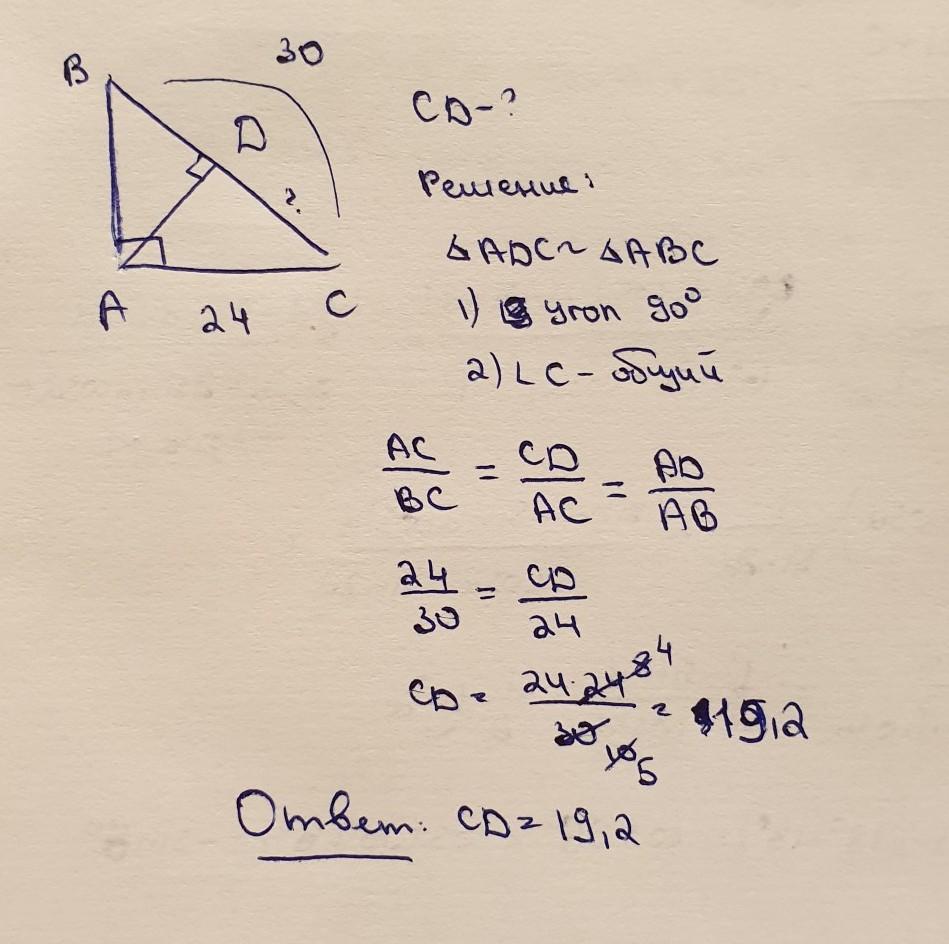 30
B
D
?
A 24 C
CD-?
Решение:
△ADC~△ABC
1) угол 90°
2) ∠C - общий
AC/BC = CD/AC = AD/AB
24/30 = CD/24
CD = 24·24 8 4 / 30 10 5 = 19,2
Ответ: CD = 19,2